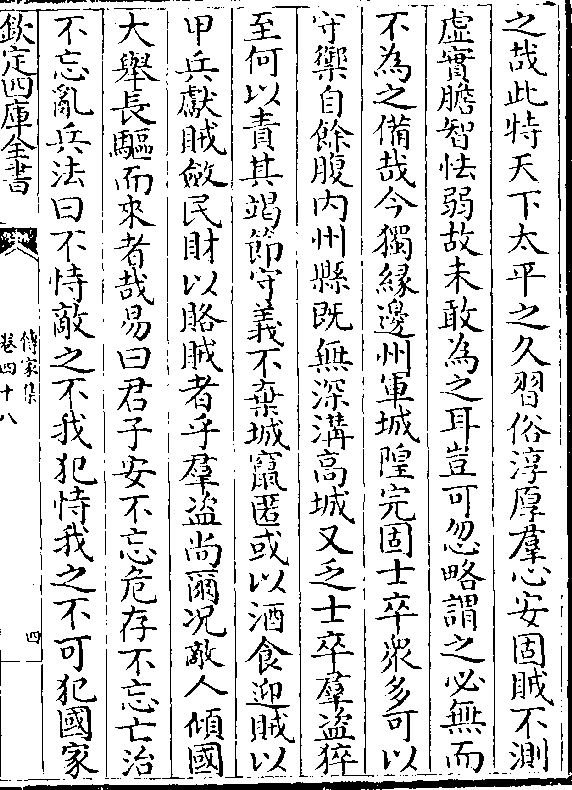 之哉此特天下太平之久習俗淳厚羣心安固賊不測
虛實膽智怯弱故未敢為之耳豈可忽略謂之必無而
不為之備哉今獨緣邊州軍城隍完固士卒衆多可以
守禦自餘腹内州縣既無深溝高城又乏士卒羣盜猝
至何以責其竭節守義不棄城竄匿或以酒食迎賊以
甲兵獻賊斂民財以賂賊者乎羣盜尚爾况敵人傾國
大舉長驅而來者哉易曰君子安不忘危存不忘亡治
不忘亂兵法曰不恃敵之不我犯恃我之不可犯國家
欽定四庫全書
傳家集
卷四十八
四